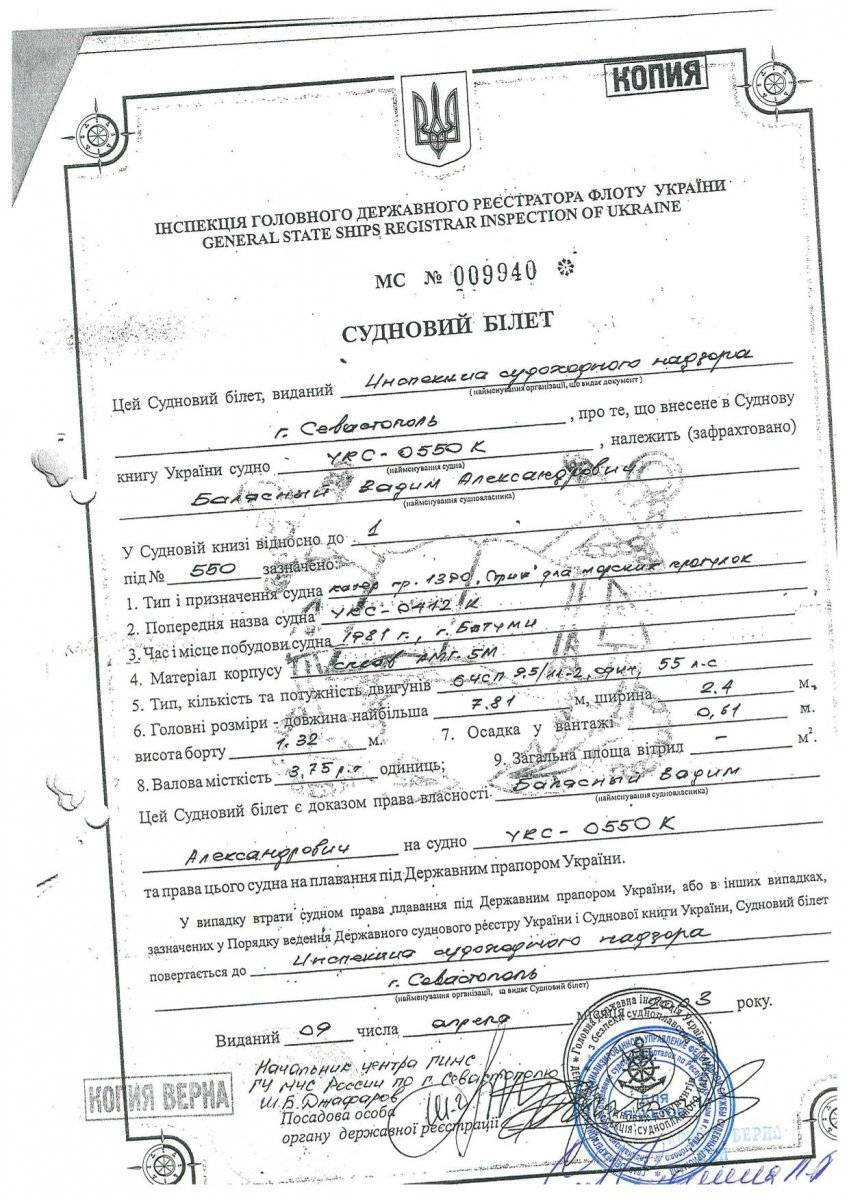 КОПИЯ
ІНСПЕКЦІЯ ГОЛОВНОГО ДЕРЖАВНОГО РЕЄСТРАТОРА ФЛОТУ УКРАЇНИ
GENERAL STATE SHIPS REGISTRAR INSPECTION OF UKRAINE
МС № 009940
СУДНОВИЙ БІЛЕТ
Цей Судновий білет, виданий Инспекция судоходного надзора
(найменування організації, що видає документ)
г. Севастополь , про те, що внесене в Суднову
книгу України судно УКС-0550 К , належить (зафрахтовано)
(найменування судна)
Баласный Вадим Александрович
(найменування судновласника)
У Судновій книзі відносно до 1
під № 550 зазначено:
1. Тип і призначення судна катер пр. 1390, для морских прогулок
2. Попередня назва судна УКС-0412 К
3. Час і місце побудови судна 1981 г., г. Батуми
4. Матеріал корпусу сплав АМГ-5М
5. Тип, кількість та потужність двигунів 6ЧСП 9.5/11-2, один, 55 л-с
6. Головні розміри - довжина найбільша 7.81 м, ширина 2.4 м,
висота борту 1.32 м. 7. Осадка у вантажі 0,61 м.
8. Валова місткість 3,75 р.т одиниць; 9. Загальна площа вітрил – м².
Цей Судновий білет є доказом права власності Баласный Вадим
(найменування судновласника)
Александрович на судно УКС-0550 К
та права цього судна на плавання під Державним прапором України.
У випадку втрати судном права плавання під Державним прапором України, або в інших випадках,
зазначених у Порядку ведення Державного суднового реєстру України і Суднової книги України, Судновий білет
повертається до Инспекция судоходного надзора
г. Севастополь
(найменування організації, що видає Судновий білет)
Виданий 09 числа апреля місяця 2003 року.
Начальник центра ГИМС
ГУ МЧС России по г. Севастополю
Ш.Б. Джафаров
Посадова особа
органу державної реєстрації
КОПИЯ ВЕРНА